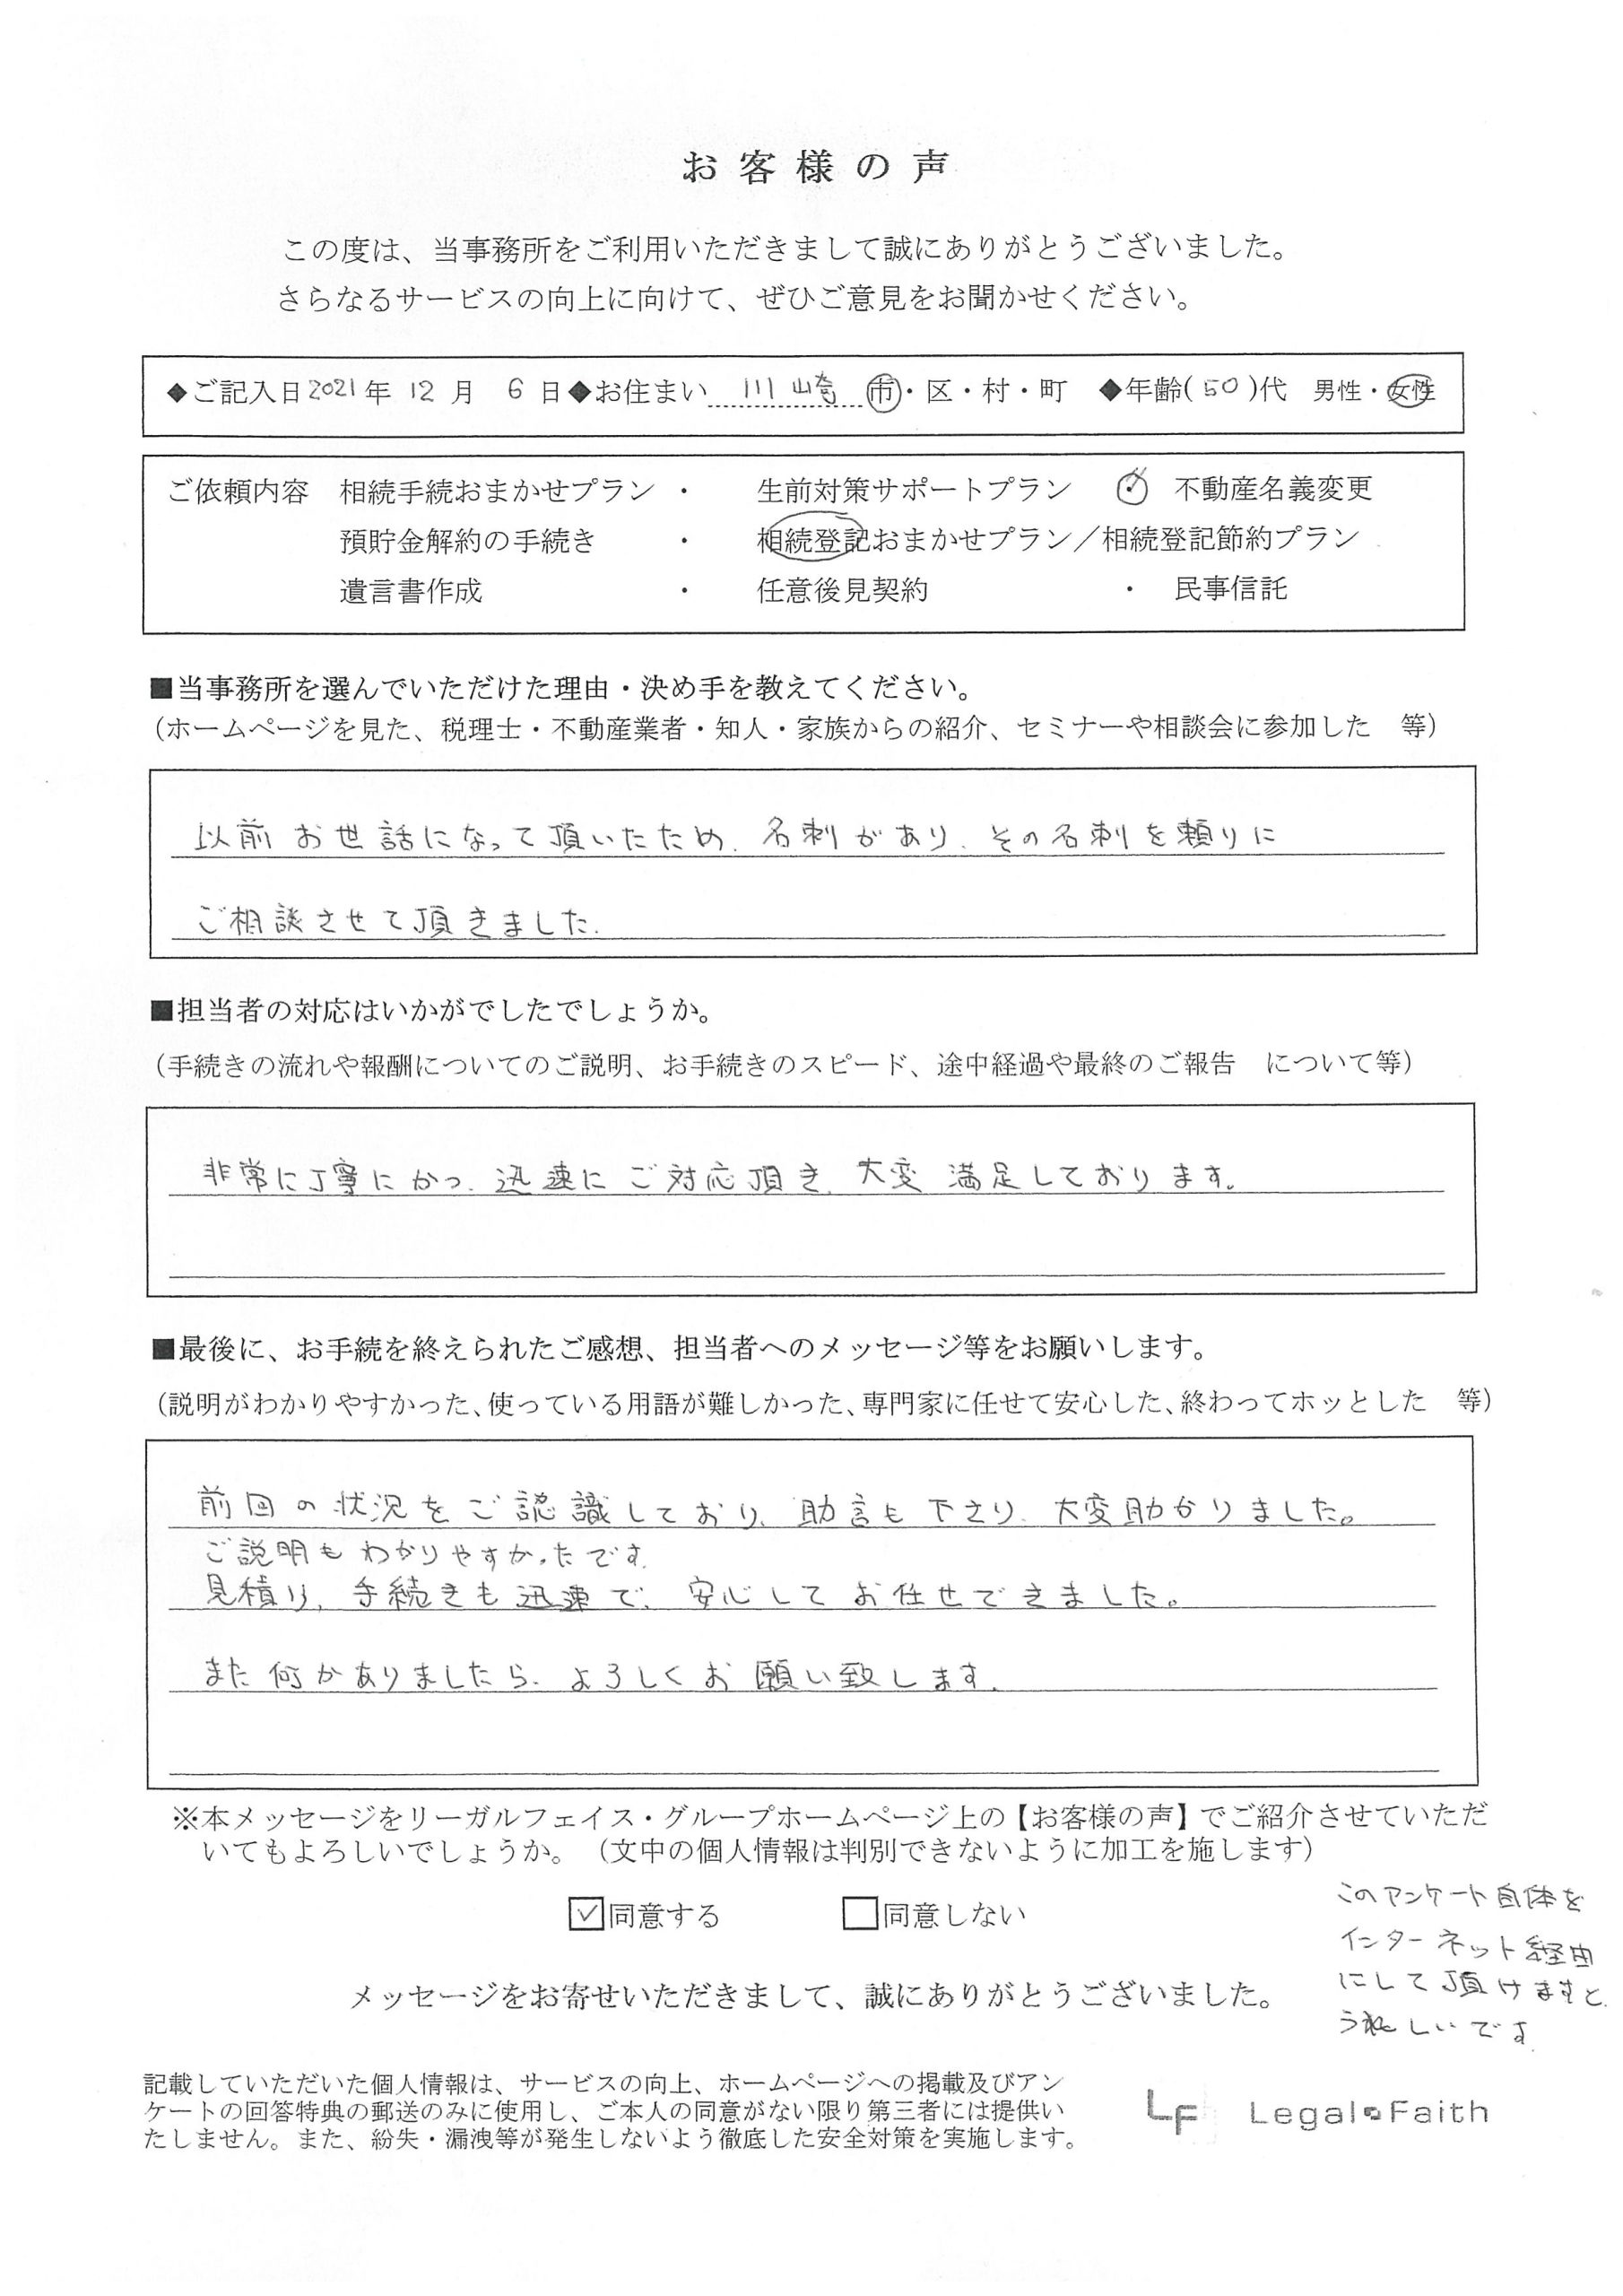 お客様の声
この度は、当事務所をご利用いただきまして誠にありがとうございました。
さらなるサービスの向上に向けて、ぜひご意見をお聞かせください。
◆ご記入日2021年 12月 6日◆お住まい 川崎 市・区・村・町 ◆年齢(50)代 男性・女性
ご依頼内容 相続手続おまかせプラン ・ 生前対策サポートプラン ・ 不動産名義変更
預貯金解約の手続き ・ 相続登記おまかせプラン／相続登記節約プラン
遺言書作成 ・ 任意後見契約 ・ 民事信託
■当事務所を選んでいただけた理由・決め手を教えてください。
（ホームページを見た、税理士・不動産業者・知人・家族からの紹介、セミナーや相談会に参加した 等）
以前お世話になって頂いたため、名刺があり、その名刺を頼りに
ご相談させて頂きました。
■担当者の対応はいかがでしたでしょうか。
（手続きの流れや報酬についてのご説明、お手続きのスピード、途中経過や最終のご報告 について等）
非常に丁寧にかつ、迅速にご対応頂き、大変満足しております。
■最後に、お手続を終えられたご感想、担当者へのメッセージ等をお願いします。
（説明がわかりやすかった、使っている用語が難しかった、専門家に任せて安心した、終わってホッとした 等）
前回の状況をご認識しており、助言も下さり、大変助かりました。
ご説明もわかりやすかったです。
見積り、手続きも迅速で、安心してお任せできました。
また何かありましたら、よろしくお願い致します。
※本メッセージをリーガルフェイス・グループホームページ上の【お客様の声】でご紹介させていただ
いてもよろしいでしょうか。（文中の個人情報は判別できないように加工を施します）
☑同意する □同意しない
このアンケート自体を
インターネット経由
にして頂けますと、
うれしいです。
メッセージをお寄せいただきまして、誠にありがとうございました。
記載していただいた個人情報は、サービスの向上、ホームページへの掲載及びアン
ケートの回答特典の郵送のみに使用し、ご本人の同意がない限り第三者には提供い
たしません。また、紛失・漏洩等が発生しないよう徹底した安全対策を実施します。
LF Legal Faith